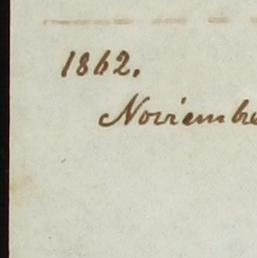 1862.
Noviembre